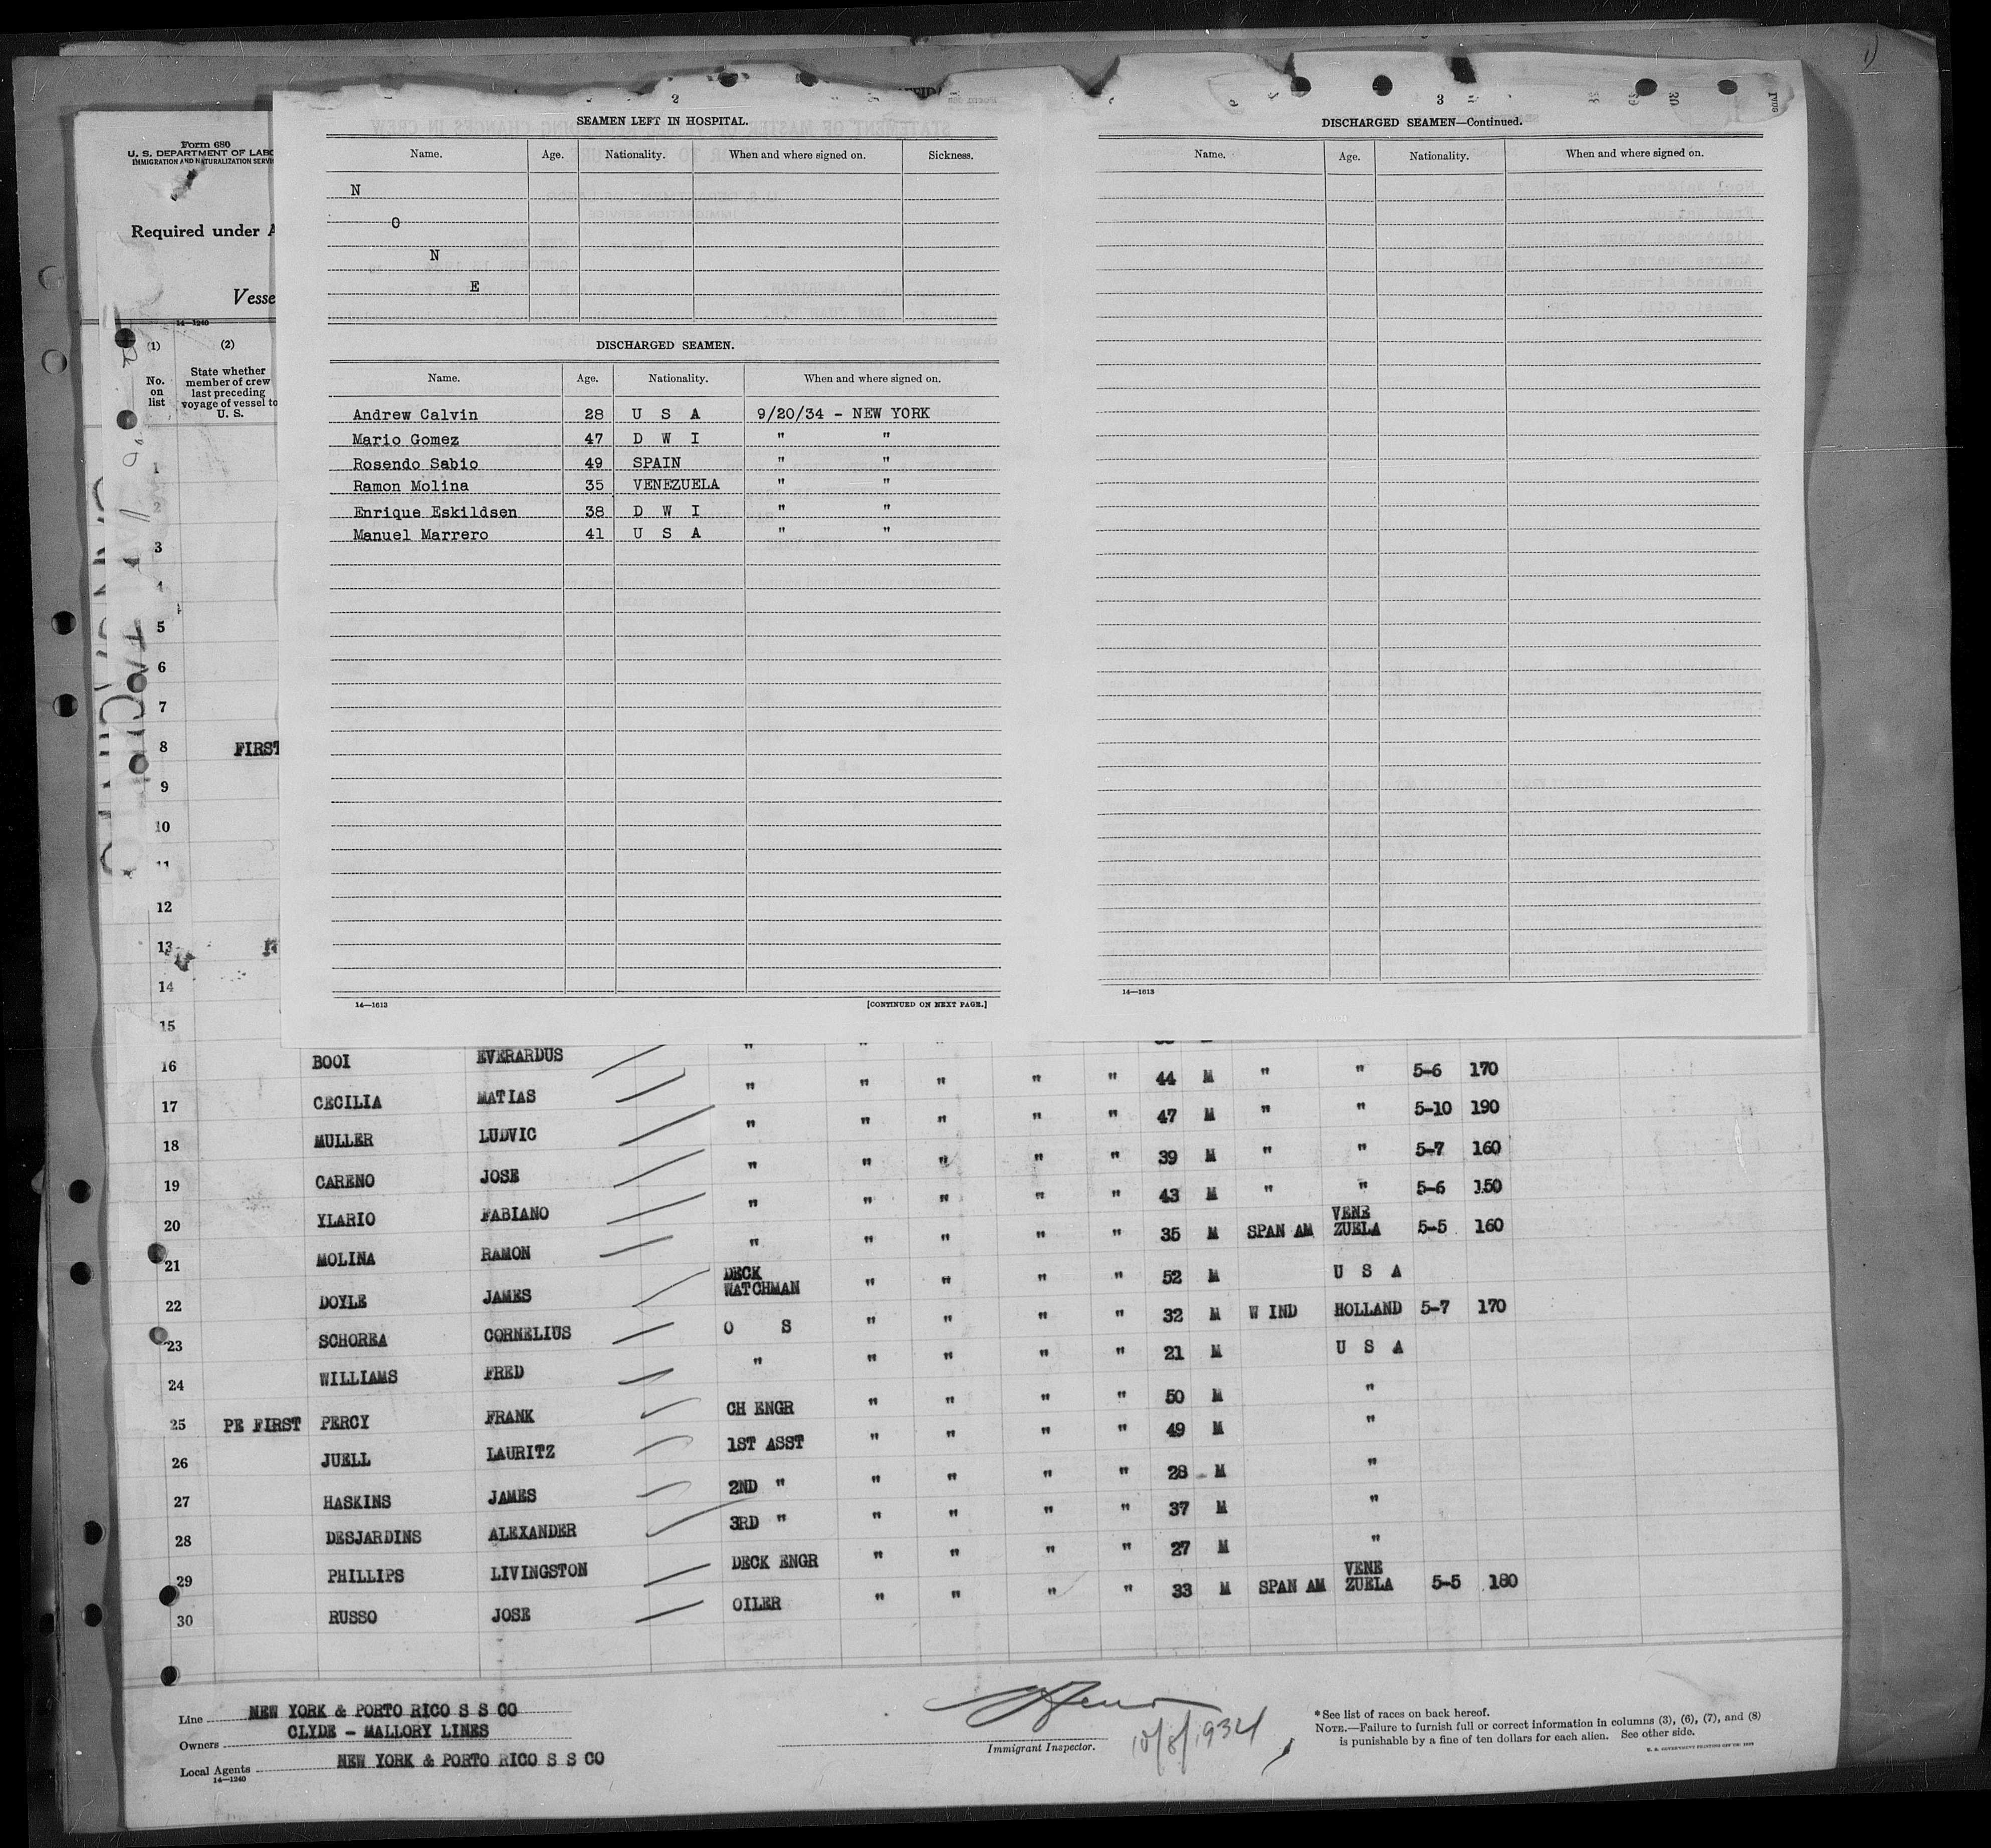 Form 680
U. S. DEPARTMENT OF LABO
IMMIGRATION AND NATURALIZATION SERVI
Required under A
Vesse
14—1240
(1) (2)
No. on list
State whether member of crew last preceding voyage of vessel to U. S.
2
SEAMEN LEFT IN HOSPITAL.
Name. Age. Nationality. When and where signed on. Sickness.
N
O
N
E
DISCHARGED SEAMEN.
Name. Age. Nationality. When and where signed on.
Andrew Calvin 28 U S A 9/20/34 - NEW YORK
Mario Gomez 47 D W I " "
Rosendo Sabio 49 SPAIN " "
Ramon Molina 35 VENEZUELA " "
Enrique Eskildsen 38 D W I " "
Manuel Marrero 41 U S A " "
14—1613 [CONTINUED ON NEXT PAGE.]
3
DISCHARGED SEAMEN—Continued.
Name. Age. Nationality. When and where signed on.
14—1613
1
2
3
4
5
6
7
8 FIRST
9
10
11
12
13
14
15
16 BOOI EVERARDUS " " " " " 44 M " " 5-6 170
17 CECILIA MATIAS " " " " " 47 M " " 5-10 190
18 MULLER LUDVIC " " " " " 39 M " " 5-7 160
19 CARENO JOSE " " " " " 43 M " " 5-6 150
20 YLARIO FABIANO " " " " " 35 M SPAN AM VENE ZUELA 5-5 160
21 MOLINA RAMON "
22 DOYLE JAMES DECK WATCHMAN " " " " 52 M U S A
23 SCHOREA CORNELIUS O S " " " " 32 M W IND HOLLAND 5-7 170
24 WILLIAMS FRED " " " " " 21 M U S A
25 PE FIRST PERCY FRANK CH ENGR " " " " 50 M "
26 JUELL LAURITZ 1ST ASST " " " " 49 M "
27 HASKINS JAMES 2ND " " " " " 28 M "
28 DESJARDINS ALEXANDER 3RD " " " " " 37 M "
29 PHILLIPS LIVINGSTON DECK ENGR " " " " 27 M "
30 RUSSO JOSE OILER " " " " 33 M SPAN AM VENE ZUELA 5-5 180
Line NEW YORK & PORTO RICO S S CO
Owners CLYDE - MALLORY LINES
Local Agents NEW YORK & PORTO RICO S S CO
14—1240
Immigrant Inspector. 10/8/1934
*See list of races on back hereof.
NOTE.—Failure to furnish full or correct information in columns (3), (6), (7), and (8)
is punishable by a fine of ten dollars for each alien. See other side.